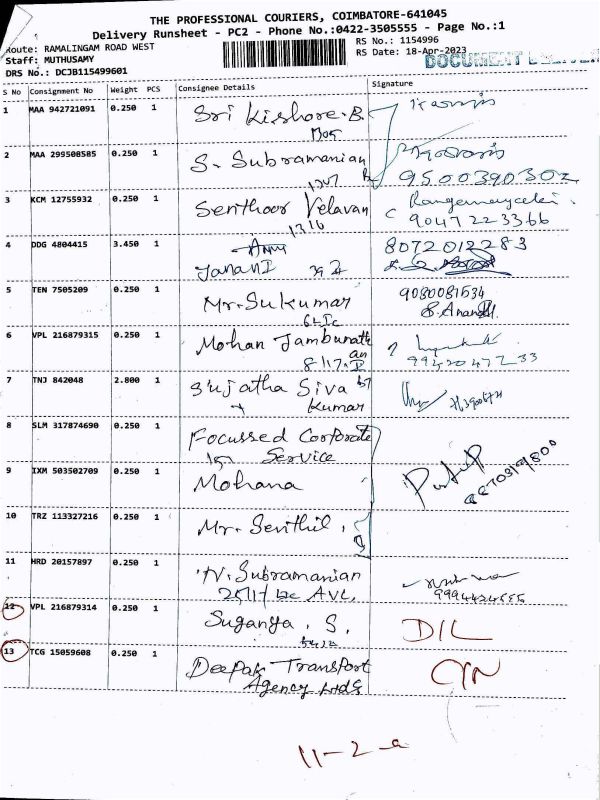 THE PROFESSIONAL COURIERS, COIMBATORE-641045
Delivery Runsheet - PC2 - Phone No.:0422-3505555 - Page No.:1
Route: RAMALINGAM ROAD WEST
RS No.: 1154996
Staff: MUTHUSAMY
RS Date: 18-Apr-2023
DOCUMENT
DRS No.: DCJB115499601
S No Consignment No Weight PCS Consignee Details Signature
1 MAA 942721091 0.250 1 Sri Kishore.B
2 MAA 299508585 0.250 1 S. Subramanian
1347 9500390302
3 KCM 12755932 0.250 1 Senthoor Velavan
1316 9047223366
4 DDG 4804415 3.450 1 8072012283
Janani 39 A
5 TEN 7505209 0.250 1 Mr. Sukumar 9080081534
S. Anandh
6 VPL 216879315 0.250 1 Mohan Jambunath
an
9942047233
7 TNJ 842048 2.800 1 Sujatha Siva
Kumar
8 SLM 317874690 0.250 1 Focussed Corporate
Service
9 IXM 503502709 0.250 1 Mohana
10 TRZ 113327216 0.250 1 Mr. Senthil.
11 HRD 20157897 0.250 1 N. Subramanian
12 VPL 216879314 0.250 1 Suganya. S. DIL
13 TCG 15059608 0.250 1 Deepak Transport
Agency
11-2-a